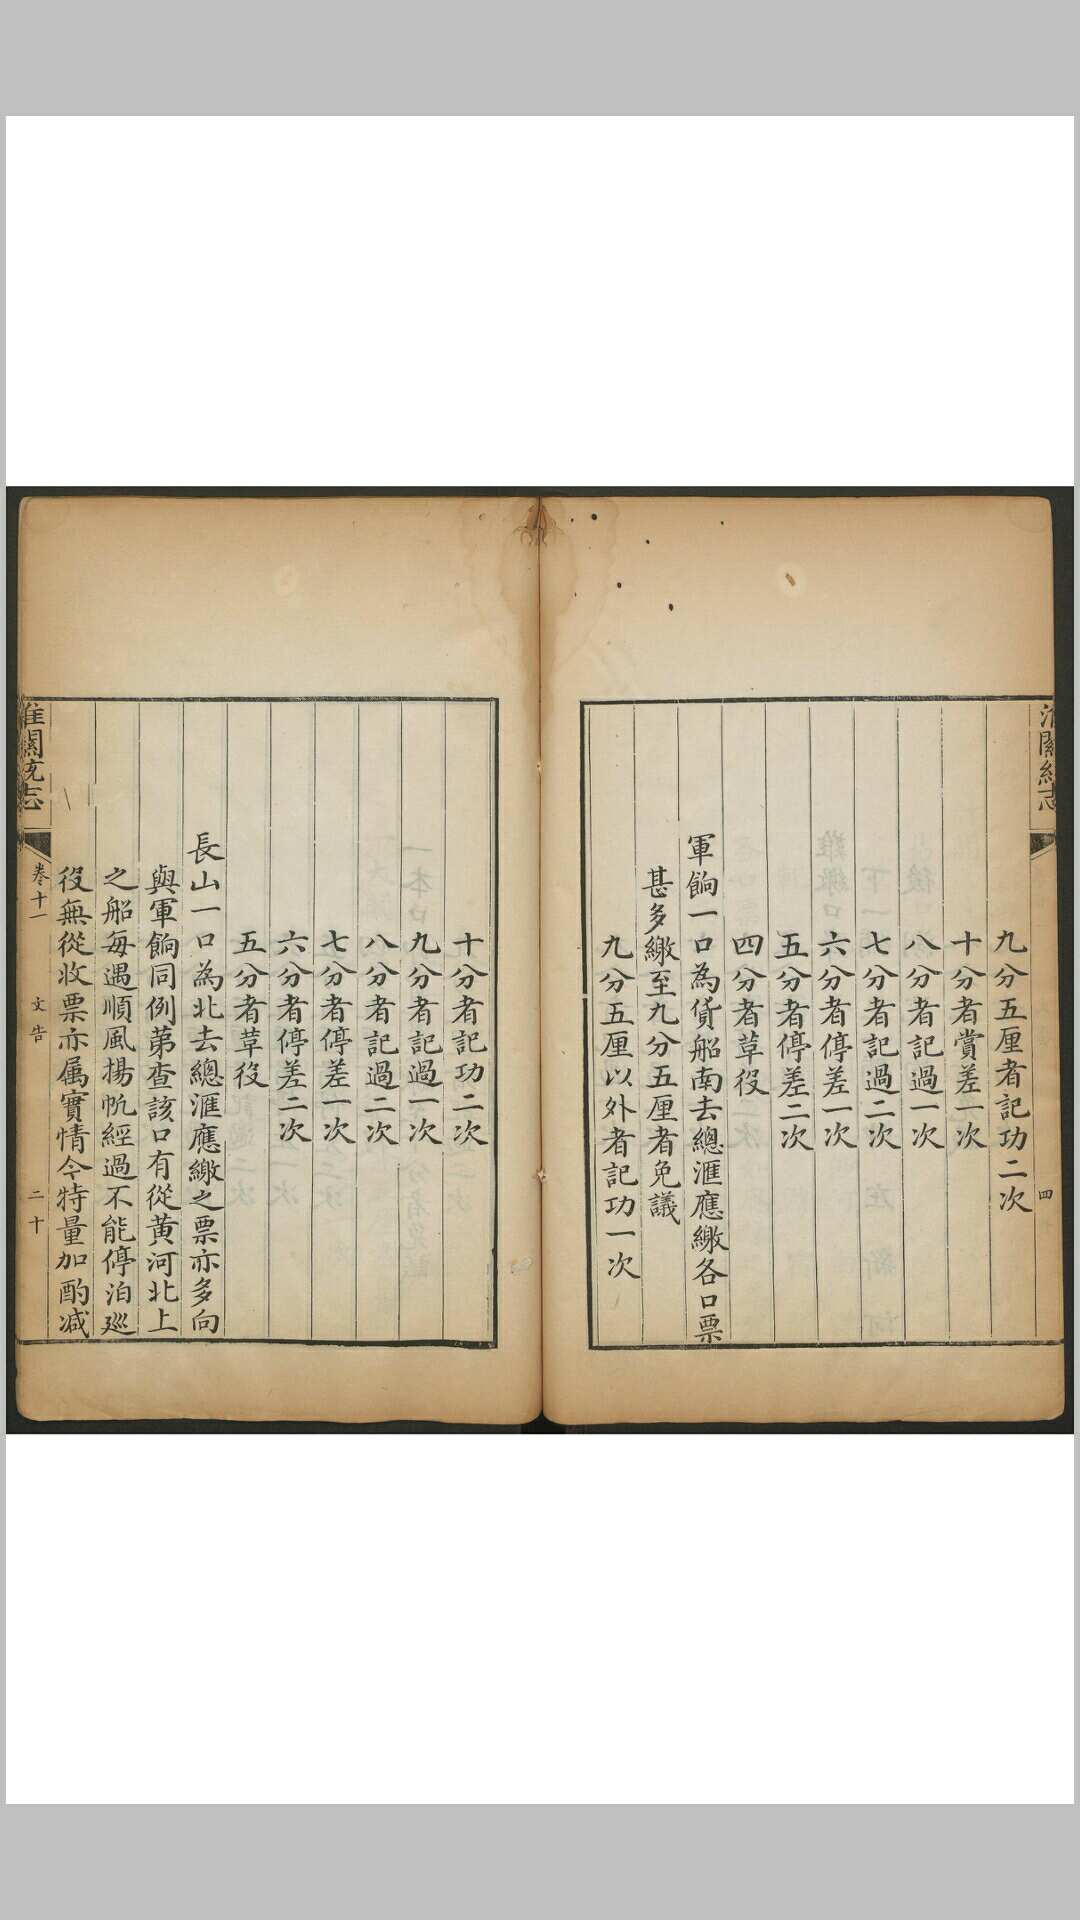 淮關統志
四
九分五厘者記功二次
十分者賞差一次
八分者記過一次
七分者記過二次
六分者停差一次
五分者停差二次
四分者草役
軍餉一口為貨船南去總滙應繳各口票
甚多繳至九分五厘者免議
九分五厘以外者記功一次
十分者記功二次
九分者記過一次
八分者記過二次
七分者停差一次
六分者停差二次
五分者草役
長山一口為北去總滙應繳之票亦多向
與軍餉同例苐查該口有從黄河北上
之船每遇順風揚帆經過不能停泊廵
役無從收票亦属實情今特量加酌减
淮關統志
卷十一
文告
二十